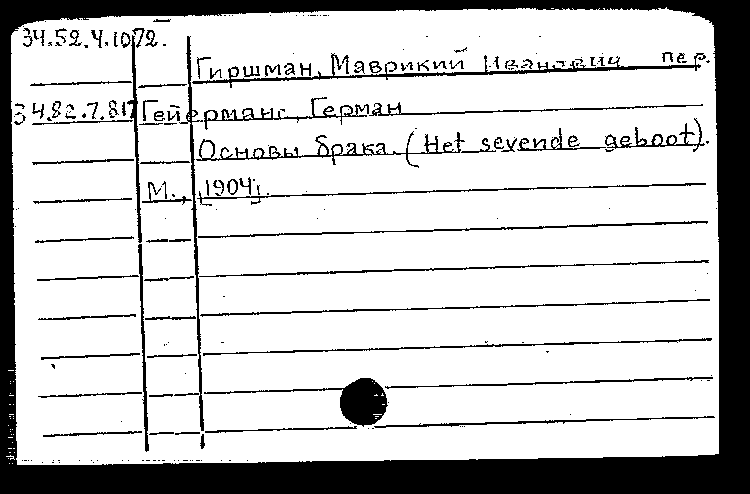 34.52.4.1072.
Гиршман, Маврикий Иванович пер.
34.82.7.817 Гейерманс, Герман
Основы брака. (Het sevende geboot).
М., [1904].